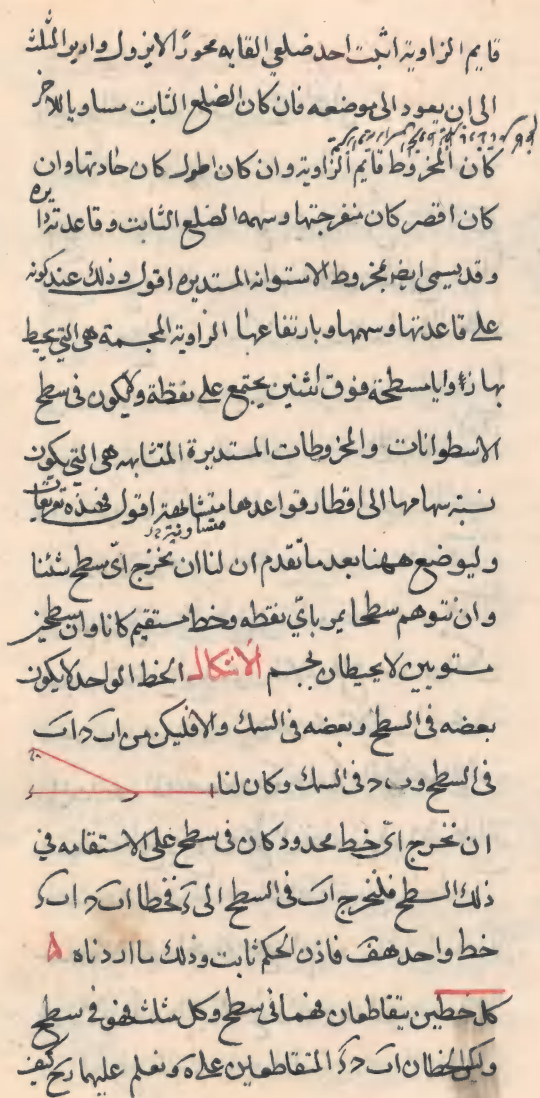 قايم الزاوية اثبت احد ضلعي القايمه محورًا لا يزول وادير المثلث
الى ان يعود الى موضعه فان كان الضلع الثابت مساويا للاخر
كان المخروط قايم الزاوية وان كان اطول كان حادتها وان
كان اقصر كان منفرجتها وسهمه الضلع الثابت وقاعدته دايره
وقد يسمى ايضا مخروط الاستوانه المستديره اقول وذلك عند كونه
على قاعدتها وسهمها وبارتفاعها الزاوية المجسمة هي التي يحيط
بها زوايا مسطحة فوق اثنين يجتمع على نقطة ولا يكون في سطح
الاسطوانات والمخروطات المستديرة المتشابهه هي التي يكون
نسبة سهامها الى اقطار قواعدها متشابهة اقول فهذه تعريفات
متساوية
وليوضع ههنا بعد ما تقدم ان لنا ان نخرج اىّ سطح شئنا
وان نتوهم سطحا يمر باىّ نقطه وخط مستقيم كانا وان سطحين
مستويين لا يحيطان بجسم الاشكال الخط الواحد لا يكون
بعضه في السطح وبعضه في السمك والا فليكن من ا ب د ا ب
في السطح و ب د في السمك وكان لنا
ان نخرج اىّ خط محدود كان في سطح على الاستقامه في
ذلك السطح فلنخرج ا ب في السطح الى ء فخطا ا ب د ا ب ء
خط واحد هف فاذن الحكم ثابت وذلك ما اردناه
كل خطين يتقاطعان فهما في سطح وكل مثلث فهو في سطح
وليكن الخطان ا ب د ء المتقاطعين على ه ونعلم عليهما ر ح كيف